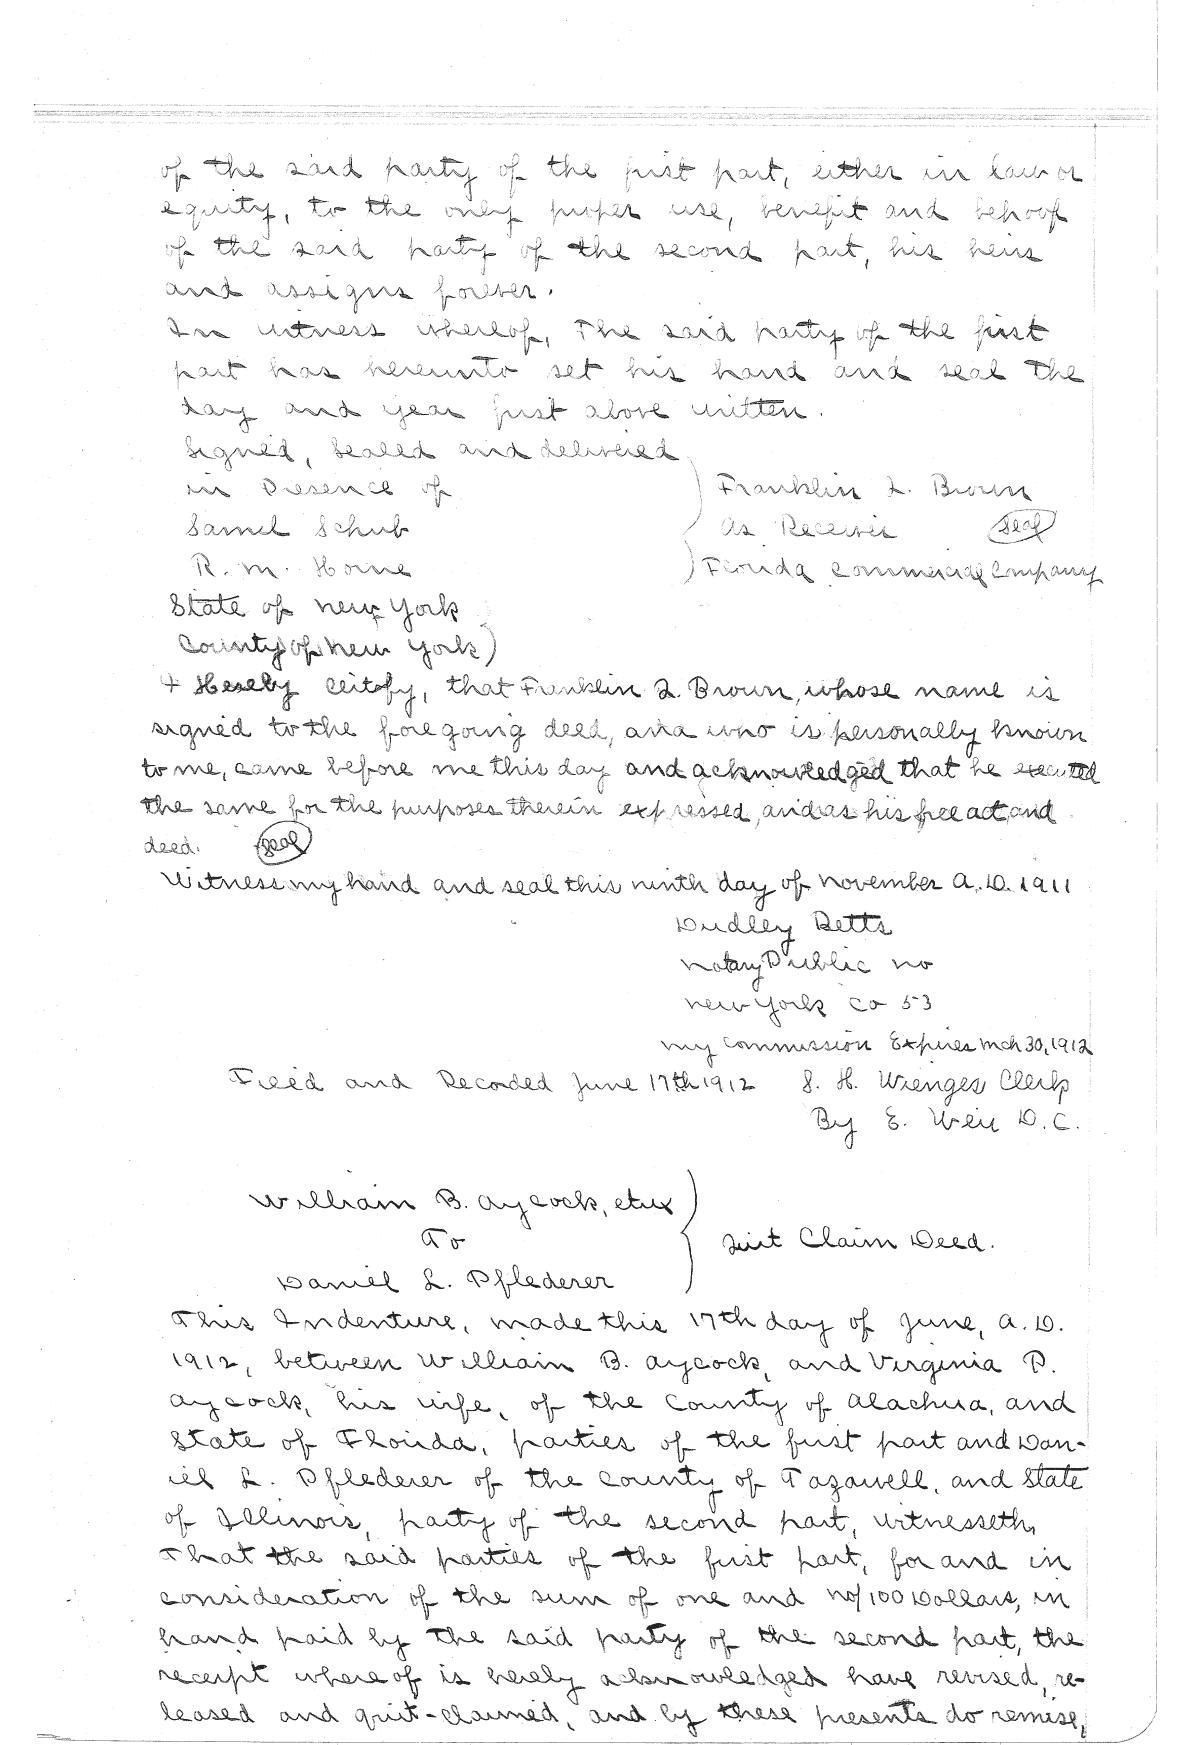 of the said party of the first part, either in law or
equity, to the only proper use, benefit and behoof
of the said party of the second part, his heirs
and assigns forever.
In witness whereof, The said party of the first
part has hereunto set his hand and seal the
day and year first above written.
Signed, Sealed and delivered
in Presence of
Franklin Q. Brown
Samil Schub
As Receiver
Seal
R. M. Horne
Florida Commercial Company
State of New York
County of New York)
I Hereby Certify, that Franklin Q. Brown, whose name is
signed to the foregoing deed, and who is personally known
to me, came before me this day and acknowledged that he executed
the same for the purposes therein expressed, and as his free act and
deed. Seal
Witness my hand and seal this ninth day of November A.D. 1911
Dudley Betts
Notary Public No
New York Co 53
My Commission Expires Mch 30, 1912
Filed and Recorded June 17th 1912 S. H. Wienges Clerk
By E. Weir D.C.
William B. Aycock, etux
To
Quit Claim Deed.
Daniel L. Pflederer
This Indenture, made this 17th day of June, A.D.
1912, between William B. Aycock, and Virginia P.
Aycock, his wife, of the County of Alachua, and
State of Florida, parties of the first part and Dan-
iel L. Pflederer of the County of Tazawell, and State
of Illinois, party of the second part, witnesseth,
That the said parties of the first part, for and in
consideration of the sum of one and no/100 Dollars, in
hand paid by the said party of the second part, the
receipt whereof is hereby acknowledged have revised, re-
leased and quit-claimed, and by these presents do remise,